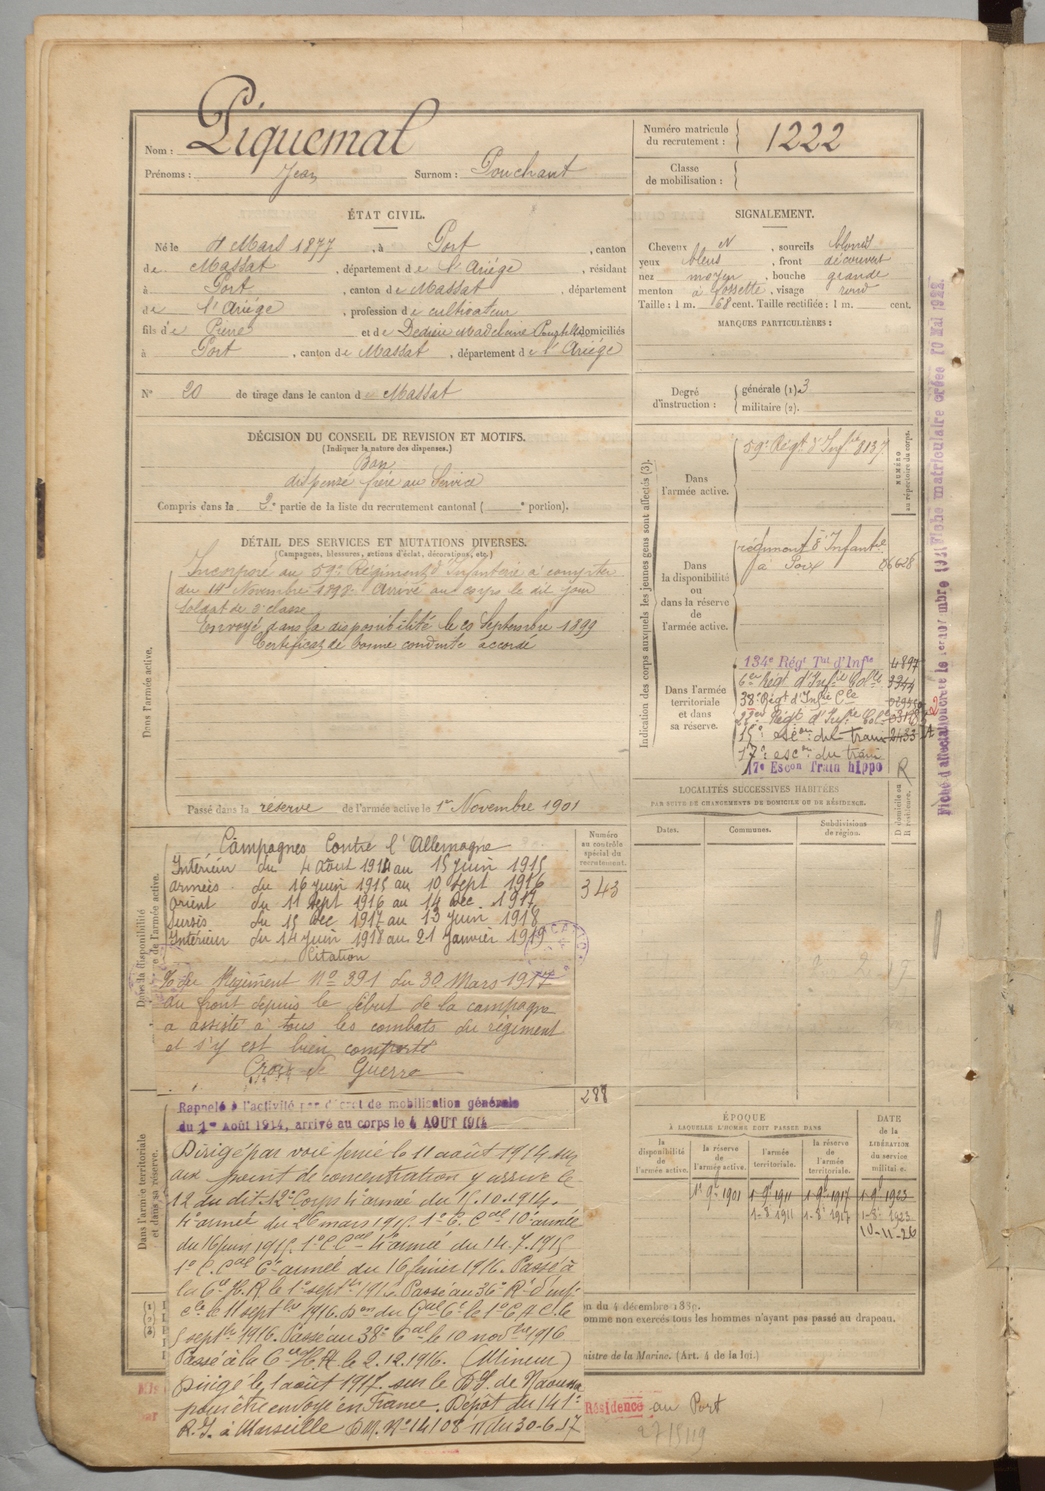 Nom : Piquemal
Prénoms : Jean Surnom : Pouchant
Numéro matricule du recrutement : 1222
Classe de mobilisation :
ÉTAT CIVIL.
Né le 4 Mars 1877, à Port, canton
de Massat, département de l'Ariége, résidant
à Port, canton de Massat, département
de l'Ariége, profession de cultivateur
fils de Pierre et de domiciliés
à Port, canton de Massat, département de l'Ariége
SIGNALEMENT.
Cheveux N, sourcils blonds
yeux bleus, front découvert
nez moyen, bouche grande
menton à fossette, visage rond
Taille : 1 m. 68 cent. Taille rectifiée : 1 m. cent.
MARQUES PARTICULIÈRES :
N° 20 de tirage dans le canton de Massat
Degré d'instruction : générale (1). 3
militaire (2).
DÉCISION DU CONSEIL DE REVISION ET MOTIFS.
(Indiquer la nature des dispenses.)
Bon
dispensé frère au Service
Compris dans la 2e partie de la liste du recrutement cantonal ( e portion).
DÉTAIL DES SERVICES ET MUTATIONS DIVERSES.
(Campagnes, blessures, actions d'éclat, décorations, etc.)
Dans l'armée active.
Incorporé au 59e Régiment d'Infanterie à compter
du 14 Novembre 1898. Arrivé au corps le dit jour
soldat de 2e classe
Envoyé dans la disponibilité le 20 Septembre 1899
Certificat de bonne conduite accordé
Passé dans la réserve de l'armée active le 1er Novembre 1901
Indication des corps auxquels les jeunes gens sont affectés (3).
NUMÉRO au répertoire du corps.
Dans l'armée active.
59e Régt d'Infie 8137
Dans la disponibilité ou dans la réserve de l'armée active.
régiment d'Infantie
à Foix 06628
Dans l'armée territoriale et dans sa réserve.
134e Régt Tal d'Infie 4897
6e Régt d'Infie Colle
38e Régt d'Infie Cle
Régt d'Infie Col
15e escon du train 2433
17e escon du train
17e Escon Train hippo R
Fiche d'affectation créée le 1er novembre 1921 Fiche matriculaire créée 10 Mai 1922.
LOCALITÉS SUCCESSIVES HABITÉES
PAR SUITE DE CHANGEMENTS DE DOMICILE OU DE RÉSIDENCE.
Dates. Communes. Subdivisions de région. D domicile ou R résidence.
Numéro au contrôle spécial du recrutement.
343
Campagnes Contre l'Allemagne
Intérieur du 4 aout 1914 au 15 juin 1915
armées du 16 juin 1915 au 10 sept 1916
orient du 11 sept 1916 au 14 dec. 1917
sursis du 15 dec 1917 au 13 juin 1918
Intérieur du 14 juin 1918 au 21 janvier 1919
Citation
du Régiment No 391 du 30 Mars 1917
au front depuis le début de la campagne
a assisté à tous les combats du régiment
et s'y est bien comporté
Croix de Guerre
288
Dans l'armée territoriale et dans sa réserve.
Rappelé à l'activité par décret de mobilisation générale
du 1er Août 1914, arrivé au corps le 4 AOUT 1914
Dirigé par voie ferrée le 11 août 1914
aux point de concentration y arrive le
12 du dit. 12e Corps 4e armée du 15.10.1914.
4e armée du 26 mars 1915. 1er C. Cal 10e armée
du 16 juin 1915. 1er C Cal 4e armée du 14.7.1915
1er C. Cal 6e armée du 16 février 1916. Passé à
la C. H. R. le 1er septbre 1916 Passé au 36e Rt d'inf.
cle le 11 septbre 1916.
5 septbre 1916. Passé au 38e Cal le 10 novbre 1916
Passé à la Cie H.R. le 2.12.1916. (Mineur)
Dirigé le 1 août 1917 sur le D.I. de Naoussa
pour être envoyé en France. Dépôt du 141e
R.I. à Marseille D.M. No 14108 du 30-6-17
ÉPOQUE
À LAQUELLE L'HOMME DOIT PASSER DANS
la disponibilité de l'armée active. la réserve de l'armée active. l'armée territoriale. la réserve de l'armée territoriale.
DATE de la LIBÉRATION du service militaire.
1er 9bre 1901 1er 9bre 1911 1er 9bre 1917 1er 9bre 1923
1-8-1911 1-8-1917 1-8-1923
10-11-26
du 4 décembre 1889.
omme non exercés tous les hommes n'ayant pas passé au drapeau.
nistre de la Marine. (Art. 4 de la loi.)
Résidence au Port